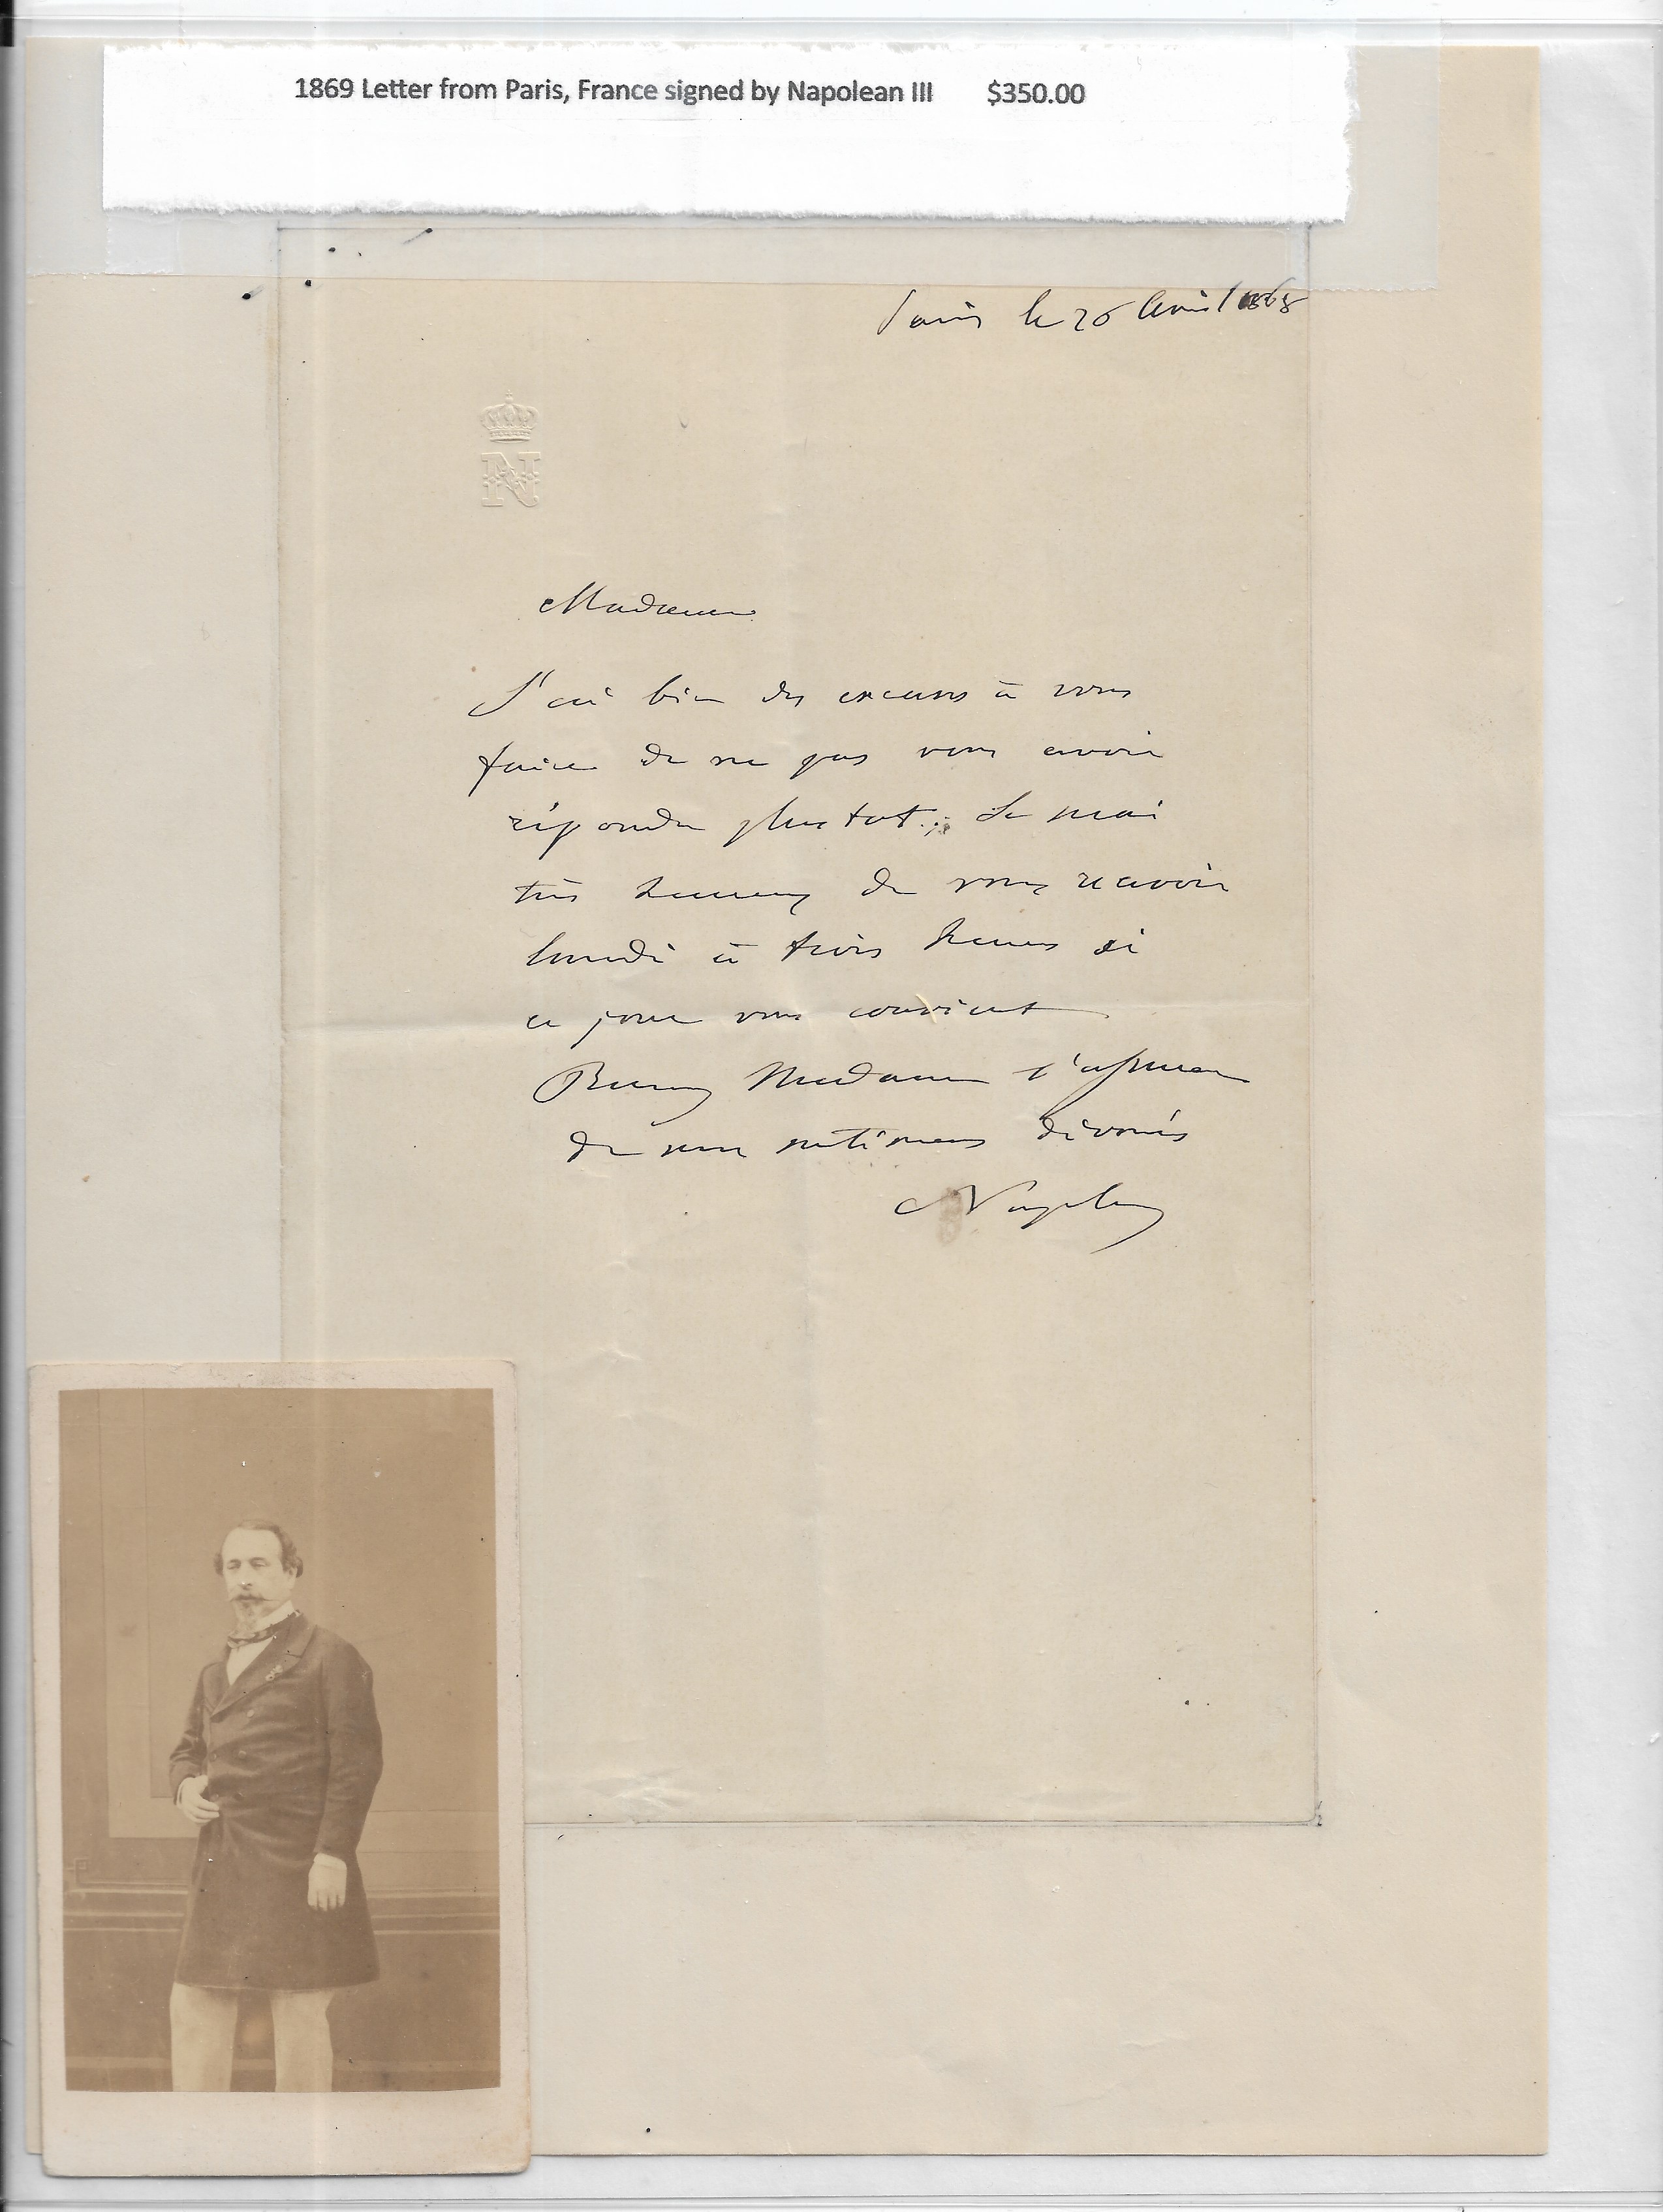 1869 Letter from Paris, France signed by Napolean III $350.00
Paris le 26 Avril 1868
N
Madame
J'ai bien des excuses à vous
faire de ne pas vous avoir
répondu plustot. Je serai
très heureux de vous recevoir
lundi à trois heures si
ce jour vous convient
Recevez Madame l'assurance
de mes sentimens dévoués
Napoleon